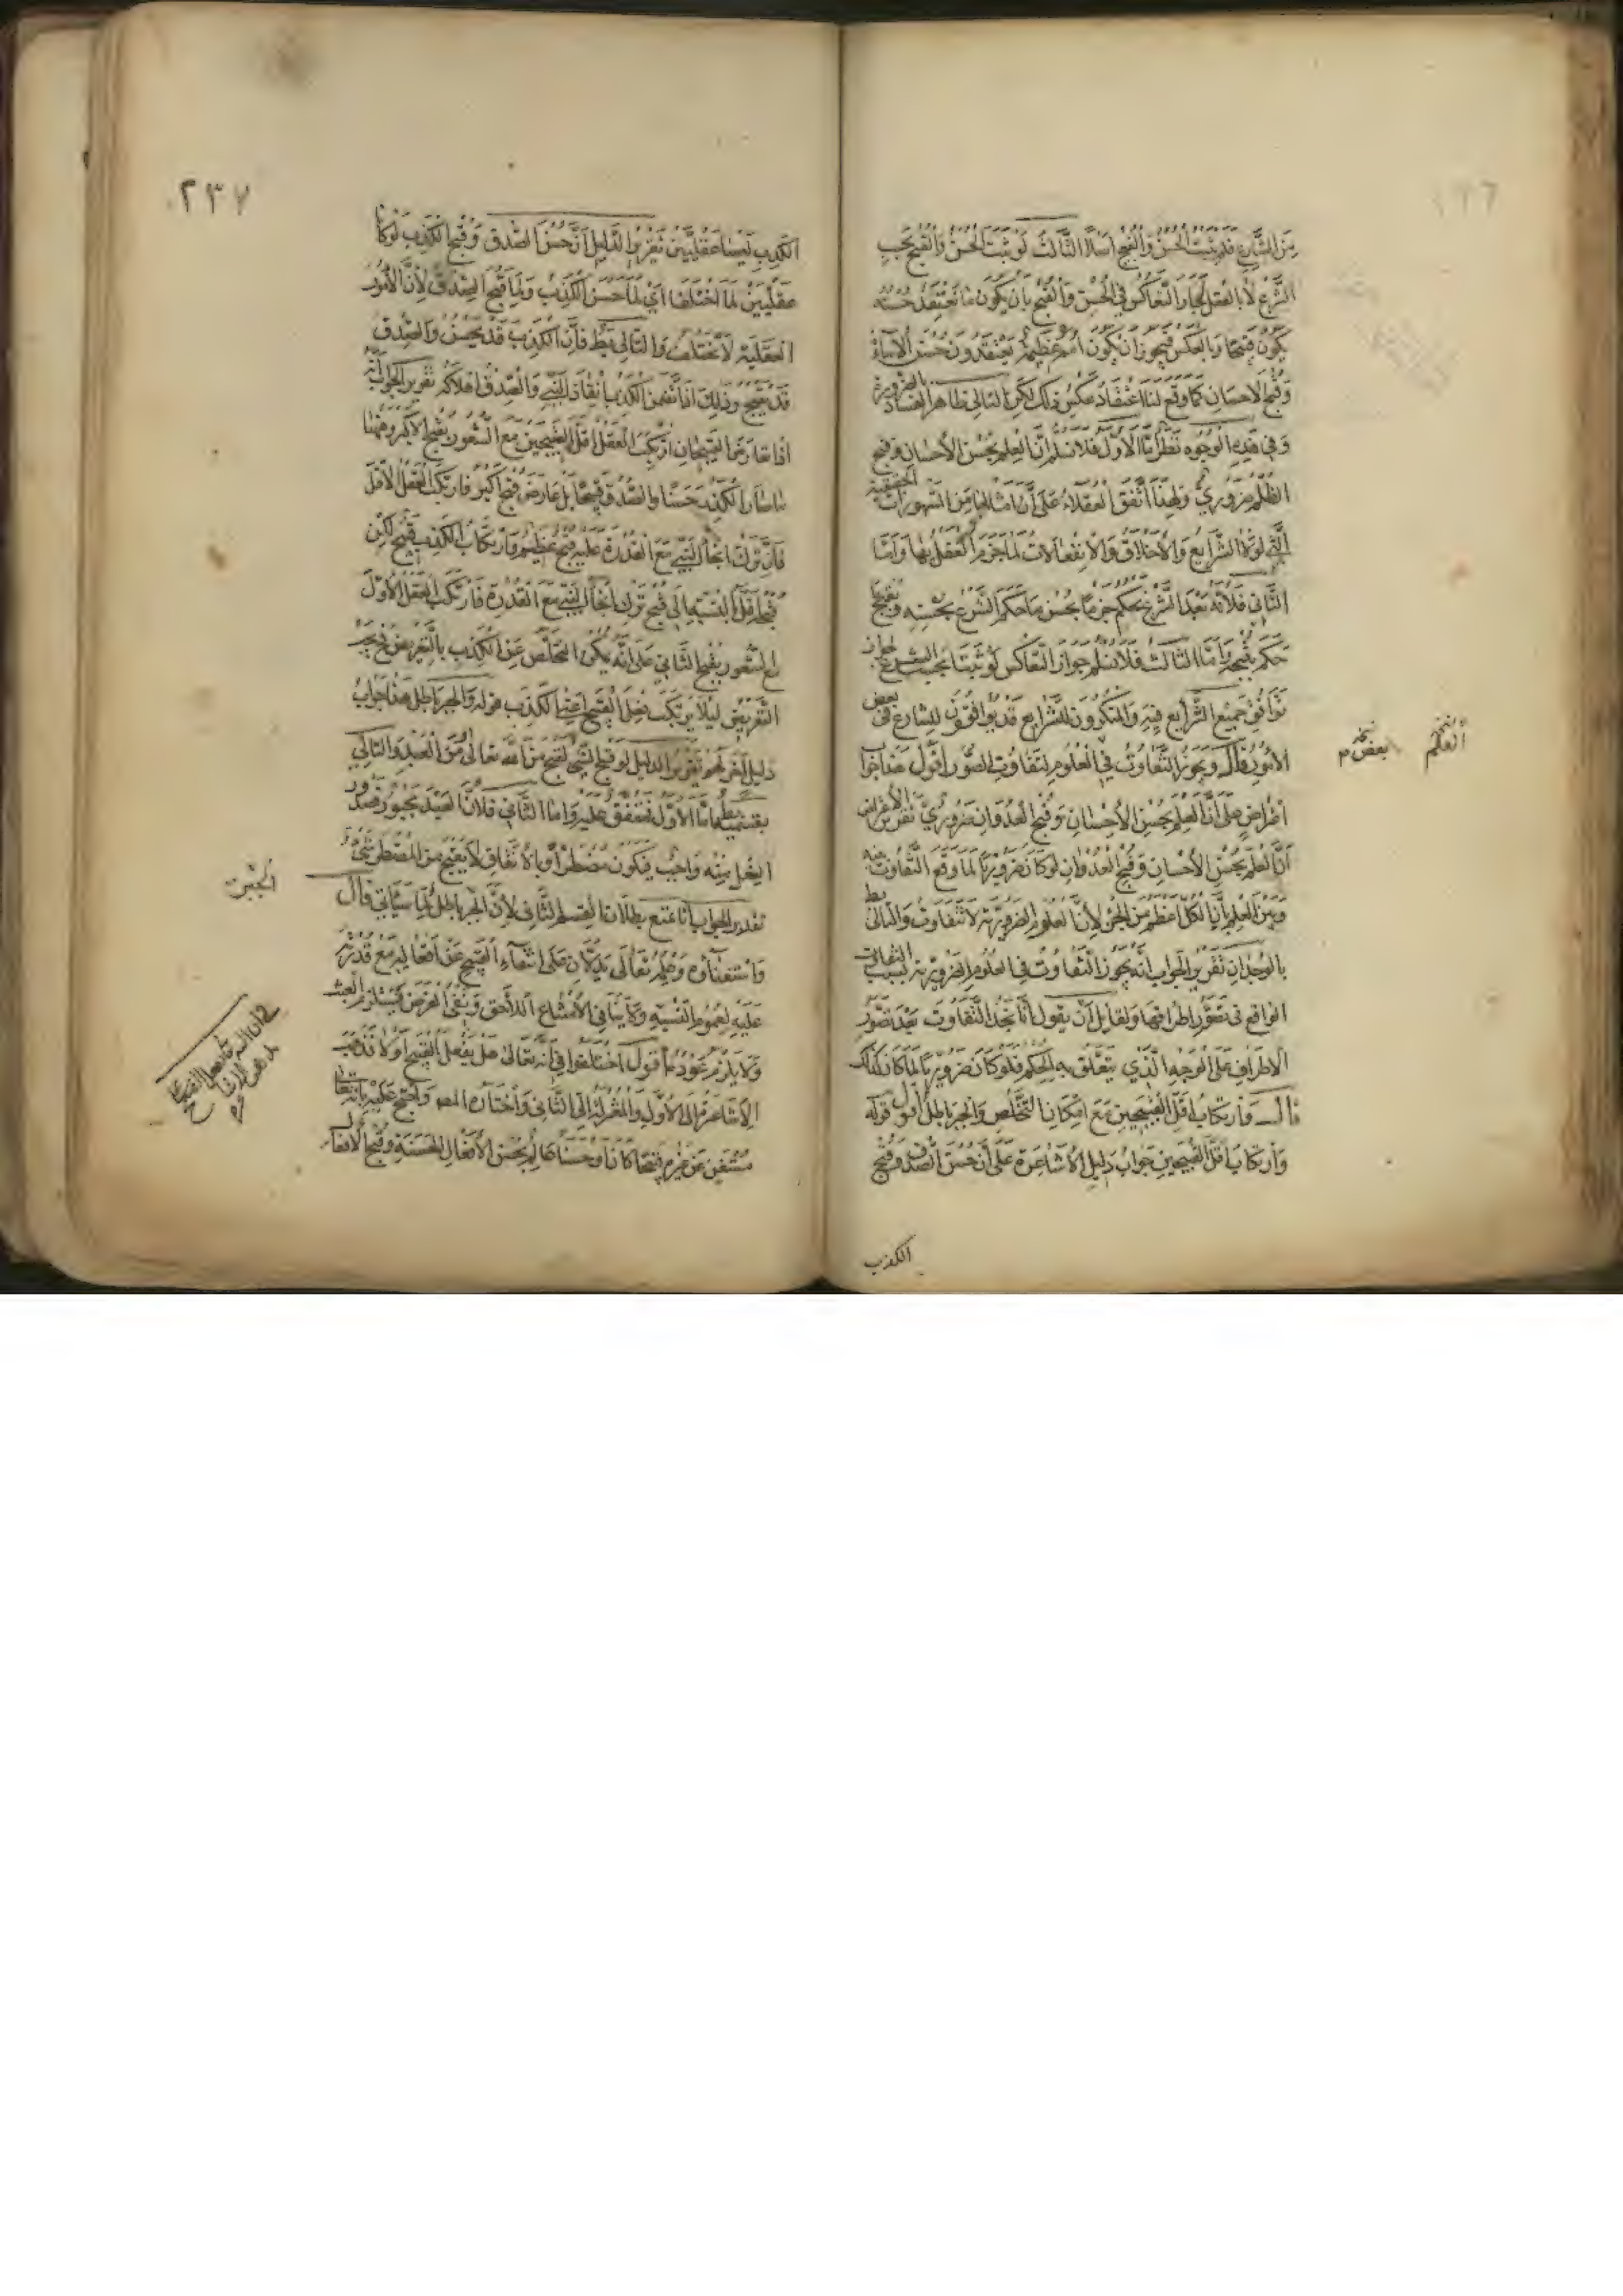 من الشارع فلم يثبت الحسن والقبح اصلا الثالث لو ثبت الحسن والقبح بحسب
الشرع لا بالعقل لجاز التعاكس في الحسن والقبح بان يكون ما نعتقد حسنه
يكون قبيحا وبالعكس فيجوز ان يكون امم عظيمة يعتقدون حسن الاساءة
وقبح الاحسان كما وقع لنا اعتقاد عكس ذلك لكن التالي ظاهر الفساد بالضرورة
وفي هذه الوجوه نظر اما الاول فلانسلم ان العلم بحسن الاحسان وقبح
الظلم ضروري ولهذا اتفق العقلاء على ان امثالها من المشهورات الحقيقية
التي لولا الشرايع والاخلاق والانفعالات لما جزم العقل بها واما
الثاني فلانه بعد الشرع نحكم جزما بحسن ما حكم الشرع بحسنه وبقبح ما
حكم بقبحه واما الثالث فلانسلم جواز التعاكس لو ثبتا بحسب الشرع لجواز
توافق جميع الشرايع فيه والمنكرون للشرايع قد يوافقون للشارع في بعض
الامور قال ويجوز التفاوت في العلوم لتفاوت التصور اقول هذا جواب
اعتراض على ان العلم بحسن الاحسان وقبح العدوان ضروري تقرير الاعتراض
ان العلم بحسن الاحسان وقبح العدوان لو كان ضروريا لما وقع التفاوت بينه
وبين العلم بان الكل اعظم من الجزء لان العلوم الضرورية لا تتفاوت والتالي بط
بالوجدان تقرير الجواب انه يجوز التفاوت في العلوم الضرورية بسبب التفاوت
الواقع في تصور اطرافها ولقايل ان يقول انا نجد التفاوت بعد تصور
الاطراف على الوجه الذي يتعلق به الحكم فلو كان ضروريا لما كان كذلك
قال وارتكاب اقل القبيحين مع امكان التخلص والجبر باطل اقول قوله
وارتكاب اقل القبيحين جواب دليل الاشاعرة على ان حسن الصدق وقبح
الكذب
العلم
بعض م
٢٣٧
الكذب ليسا عقليين تقرير الدليل ان حسن الصدق وقبح الكذب لو كانا
عقليين لما اختلفا اي لما حسن الكذب ولما قبح الصدق لان الامور
العقلية لا تختلف والتالي بط فان الكذب قد يحسن والصدق
قد يقبح وذلك اذا تضمن الكذب انقاذ النبي والصدق اهلاكه تقرير الجواب انه
اذا تعارض القبيحان ارتكب العقل اقل القبيحين مع الشعور بقبح الاكبر وههنا
ما صار الكذب حسنا والصدق قبيحا بل عارض قبح اكبر فارتكب العقل الاقل
فان ترك انجاء النبي مع القدرة عليه قبح عظيم وارتكاب الكذب قبيح لكن
قبحا اقل بالنسبة الى قبح ترك انجاء النبي مع القدرة فارتكب العقل الاول
مع الشعور بقبح الثاني على انه يمكن التخلص عن الكذب بالتعريض
التعريض ليلا يرتكب فعل القبيح اعني الكذب قوله والجبر باطل هذا جواب
دليل اخر لهم تقرير الدليل لو قبح الشيء لقبح من الله تعالى او من العبد والتالي
بقسميه بط اما الاول فمتفق عليه واما الثاني فلان العبد مجبور فصدور
الفعل منه واجب فيكون مضطرا وبالاتفاق لا يقبح من المضطر شيء
تقدير الجواب انا نمنع بطلان القسم الثاني لان الجبر باطل لما سياتي قال
واستغناؤه وعلمه تعالى يدلان على انتفاء القبيح عن افعاله مع قدرته
عليه لعموم النسبة ولا ينافي الامتناع اللاحق ونفي الغرض يستلزم العبث
ولا يلزم عوده اقول اختلفوا في انه تعالى هل يفعل القبيح او لا فذهب
الاشاعرة الى الاول والمعتزلة الى الثاني واختاره المص واحتج عليه بانه تعالى
مستغن عن غيره قبيحا كان او حسنا عالم بحسن الافعال الحسنة وقبح الافعال
الجبن